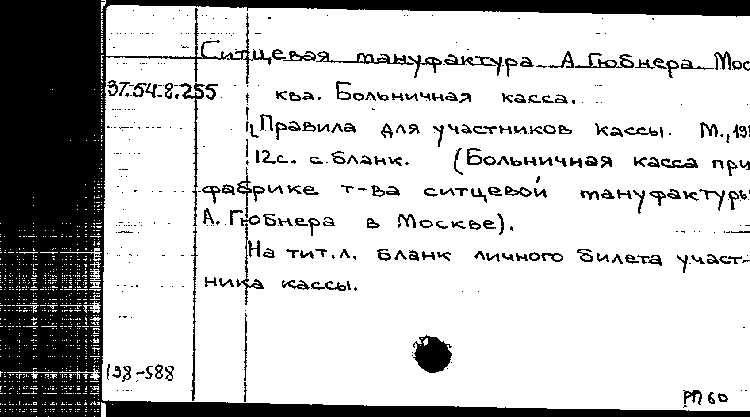 Ситцевая мануфактура А. Гюбнера. Мос
37.54.8.255 ква. Больничная касса.
Правила для участников кассы. М., 19
12с. с бланк. (Больничная касса при
фабрике т-ва ситцевой мануфактуры
А. Гюбнера в Москве).
На тит. л. бланк личного билета участ-
ника кассы.
138-588
РП 60